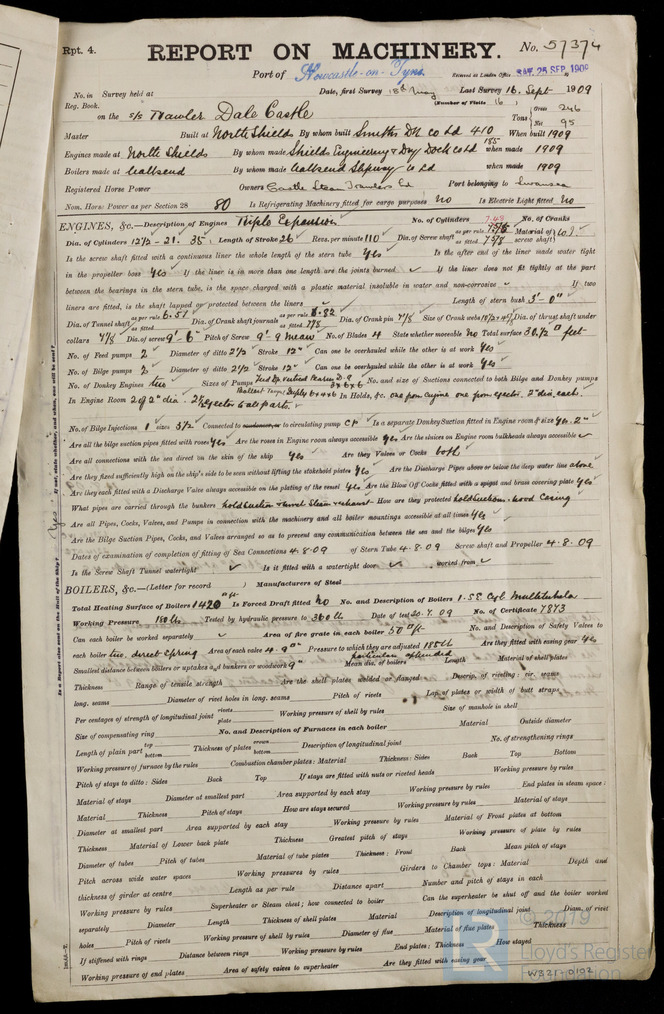 Rpt. 4. REPORT ON MACHINERY. No. 57374
Port of Newcastle-on-Tyne Received at London Office SAT. 25 SEP. 1909
No. in Survey held at Date, first Survey 18th May Last Survey 16. Sept 1909
Reg. Book. (Number of Visits 16)
on the s/s Trawler Dale Castle Tons Gross 246 Net 95
Master Built at North Shields By whom built Smiths Dk co Ld 410 When built 1909
Engines made at North Shields By whom made Shields Engineering & Dry Dock co Ld when made 1909
Boilers made at Wallsend By whom made Wallsend Slipway co Ld when made 1909
Registered Horse Power Owners Castle Steam Trawlers Ld Port belonging to Swansea
Nom. Horse Power as per Section 28 80 Is Refrigerating Machinery fitted for cargo purposes No Is Electric Light fitted No
ENGINES, &c.—Description of Engines Triple Expansion No. of Cylinders No. of Cranks
Dia. of Cylinders 12½ - 21. 35 Length of Stroke 26 Revs. per minute 110 Dia. of Screw shaft as per rule as fitted 7⅝ Material of screw shaft
Is the screw shaft fitted with a continuous liner the whole length of the stern tube Yes Is the after end of the liner made water tight
in the propeller boss Yes If the liner is in more than one length are the joints burned ✓ If the liner does not fit tightly at the part
between the bearings in the stern tube, is the space charged with a plastic material insoluble in water and non-corrosive ✓ If two
liners are fitted, is the shaft lapped or protected between the liners ✓ Length of stern bush 3'-0"
Dia. of Tunnel shaft as per rule 6.51 as fitted Dia. of Crank shaft journals as per rule 6.82 as fitted 7⅛ Dia. of Crank pin 7⅛ Size of Crank webs Dia. of thrust shaft under
collars 7⅛ Dia. of screw 9'-6" Pitch of Screw 9'-9 mean No. of Blades 4 State whether moveable No Total surface 30.72 □ feet
No. of Feed pumps 2 Diameter of ditto 2½ Stroke 12" Can one be overhauled while the other is at work Yes
No. of Bilge pumps 2 Diameter of ditto 2½ Stroke 12" Can one be overhauled while the other is at work Yes
No. of Donkey Engines two Sizes of Pumps No. and size of Suctions connected to both Bilge and Donkey pumps
In Engine Room 2 of 2" dia. 2½ Ejector to all parts. In Holds, &c. one from engine one from ejector. 2" dia. each.
No. of Bilge Injections 1 sizes 3½ Connected to condenser, or to circulating pump CP Is a separate Donkey Suction fitted in Engine room & size Yes. 2"
Are all the bilge suction pipes fitted with roses Yes Are the roses in Engine room always accessible Yes Are the sluices on Engine room bulkheads always accessible ✓
Are all connections with the sea direct on the skin of the ship Yes Are they Valves or Cocks both
Are they fixed sufficiently high on the ship's side to be seen without lifting the stokehold plates Yes Are the Discharge Pipes above or below the deep water line above
Are they each fitted with a Discharge Valve always accessible on the plating of the vessel Yes Are the Blow Off Cocks fitted with a spigot and brass covering plate Yes
What pipes are carried through the bunkers hold suction steam & exhaust How are they protected hold suction. wood casing
Are all Pipes, Cocks, Valves, and Pumps in connection with the machinery and all boiler mountings accessible at all times Yes
Are the Bilge Suction Pipes, Cocks, and Valves arranged so as to prevent any communication between the sea and the bilges Yes
Dates of examination of completion of fitting of Sea Connections 4.8.09 of Stern Tube 4.8.09 Screw shaft and Propeller 4.8.09
Is the Screw Shaft Tunnel watertight ✓ Is it fitted with a watertight door ✓ worked from ✓
BOILERS, &c.—(Letter for record ) Manufacturers of Steel
Total Heating Surface of Boilers 1420 □ ft Is Forced Draft fitted No No. and Description of Boilers 1. SE Cyl Multitubular
Working Pressure 180 lbs Tested by hydraulic pressure to 360 lb Date of test 20.7.09 No. of Certificate 7873
Can each boiler be worked separately ✓ Area of fire grate in each boiler 50 □ ft No. and Description of Safety Valves to
each boiler two, direct Spring Area of each valve 4.9 □" Pressure to which they are adjusted 185 lb Are they fitted with easing gear Yes
Smallest distance between boilers or uptakes and bunkers or woodwork 9" particulars appended Mean dia. of boilers Length Material of shell plates
Thickness Range of tensile strength Are the shell plates welded or flanged Descrip. of riveting: cir. seams
long. seams Diameter of rivet holes in long. seams Pitch of rivets Lap of plates or width of butt straps
Per centages of strength of longitudinal joint rivets plate Working pressure of shell by rules Size of manhole in shell
Size of compensating ring No. and Description of Furnaces in each boiler Material Outside diameter
Length of plain part top bottom Thickness of plates crown bottom Description of longitudinal joint No. of strengthening rings
Working pressure of furnace by the rules Combustion chamber plates: Material Thickness: Sides Back Top Bottom
Pitch of stays to ditto: Sides Back Top If stays are fitted with nuts or riveted heads Working pressure by rules
Material of stays Diameter at smallest part Area supported by each stay Working pressure by rules End plates in steam space:
Material Thickness Pitch of stays How are stays secured Working pressure by rules Material of stays
Diameter at smallest part Area supported by each stay Working pressure by rules Material of Front plates at bottom
Thickness Material of Lower back plate Thickness Greatest pitch of stays Working pressure of plate by rules
Diameter of tubes Pitch of tubes Material of tube plates Thickness: Front Back Mean pitch of stays
Pitch across wide water spaces Working pressures by rules Girders to Chamber tops: Material Depth and
thickness of girder at centre Length as per rule Distance apart Number and pitch of stays in each
Working pressure by rules Superheater or Steam chest; how connected to boiler Can the superheater be shut off and the boiler worked
separately Diameter Length Thickness of shell plates Material Description of longitudinal joint Diam. of rivet
holes Pitch of rivets Working pressure of shell by rules Diameter of flue Material of flue plates Thickness
If stiffened with rings Distance between rings Working pressure by rules End plates: Thickness How stayed
Working pressure of end plates Area of safety valves to superheater Are they fitted with easing gear
W321-0102
© 2019
Lloyd's Register
Foundation
Is a Report also sent on the Hull of the Ship? Yes